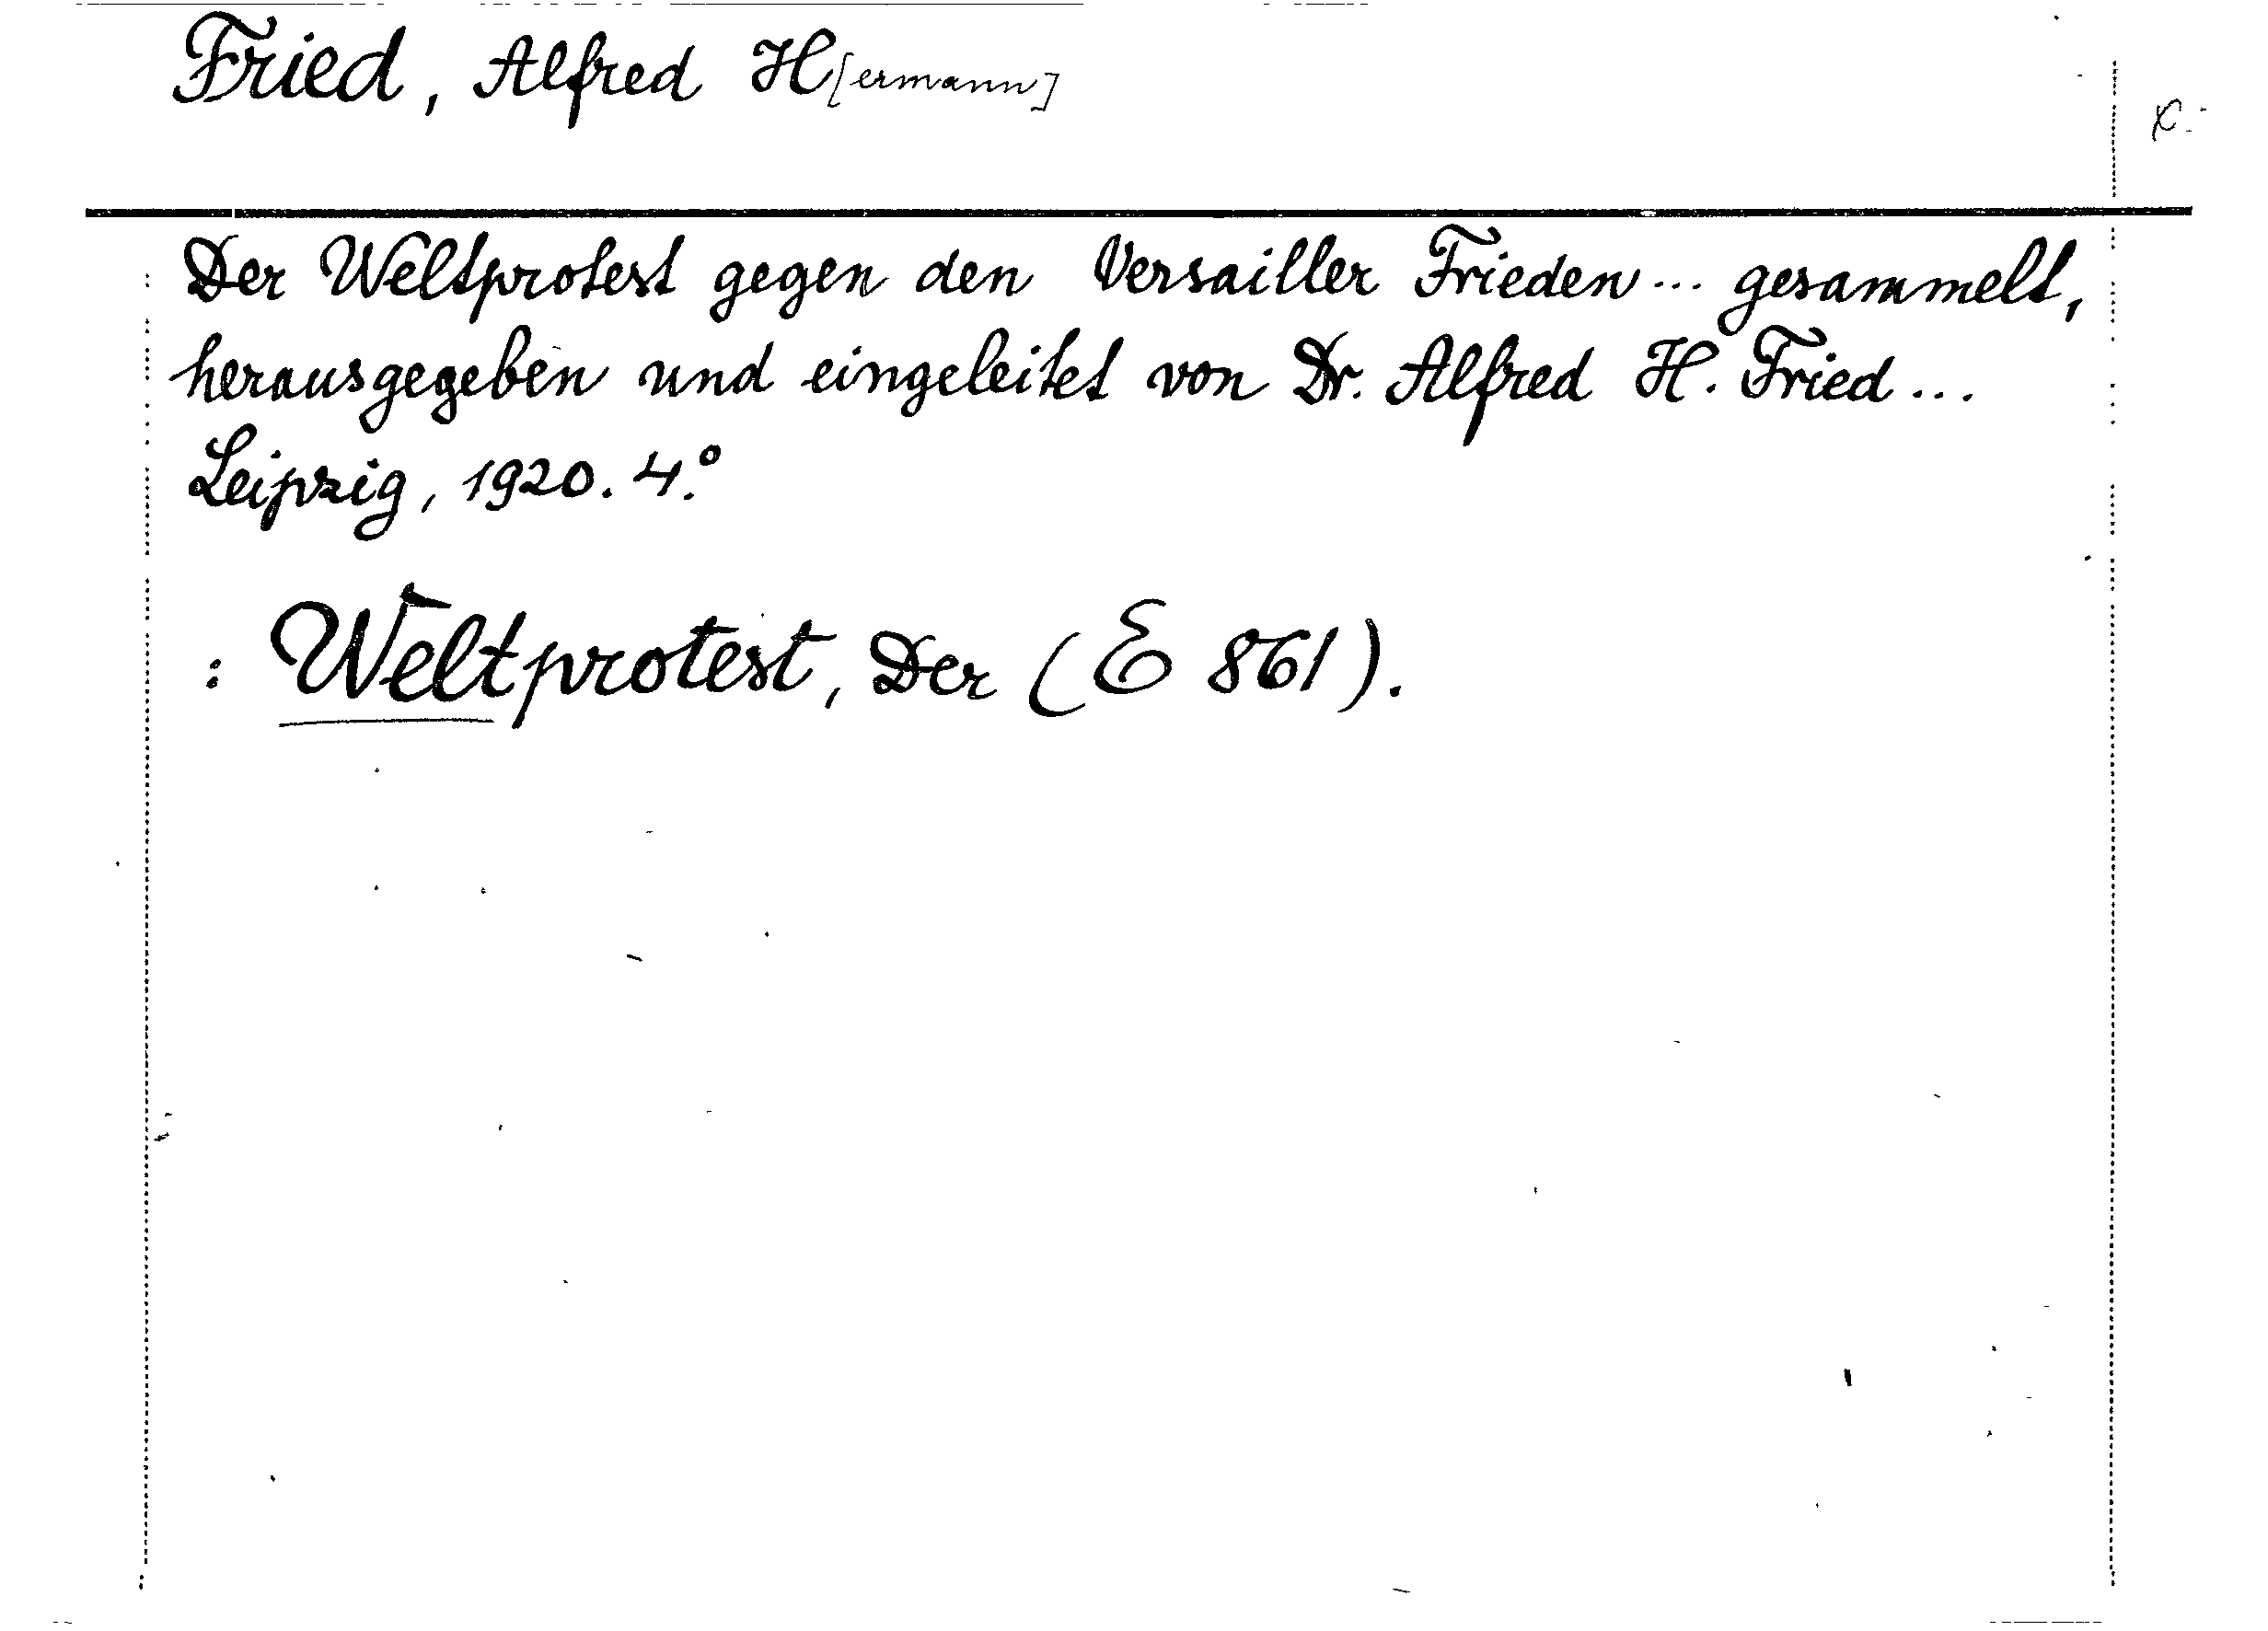 Fried, Alfred H[ermann]
Der Weltprotest gegen den Versailler Frieden... gesammelt,
herausgegeben und eingeleitet von Dr. Alfred H. Fried...
Leipzig, 1920. 4.°
: Weltprotest, Der (E 861).